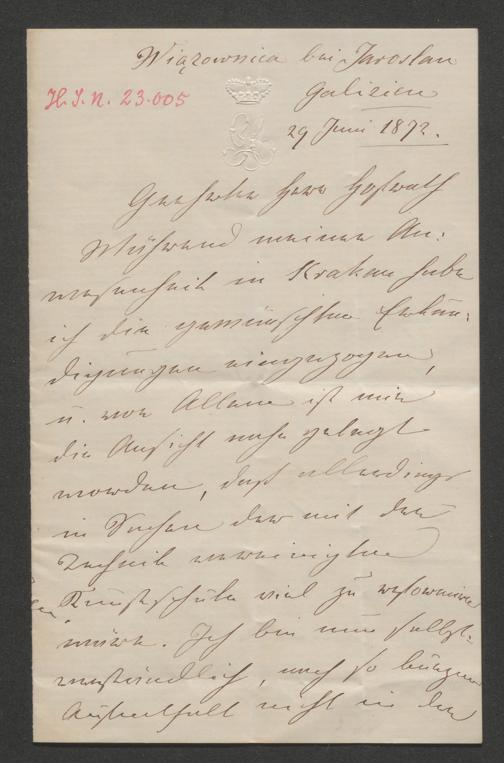 Wiązownica bei Jaroslau
H.I.N. 23.005
Galizien
29 Juni 1872.
Geehrter Herr Hofrath
Während meiner An-
wesenheit in Krakau habe
ich die gewünschten Erkun-
digungen eingezogen,
u. vor Allem ist mir
die Ansicht nahe gelegt
worden, daß allerdings
in Sachen der mit der
Technik vereinigten
Kunstschule viel zu reformiren
wäre. Ich bin nun selbst-
verständlich, nach so kurzem
Aufenthalt nicht in der